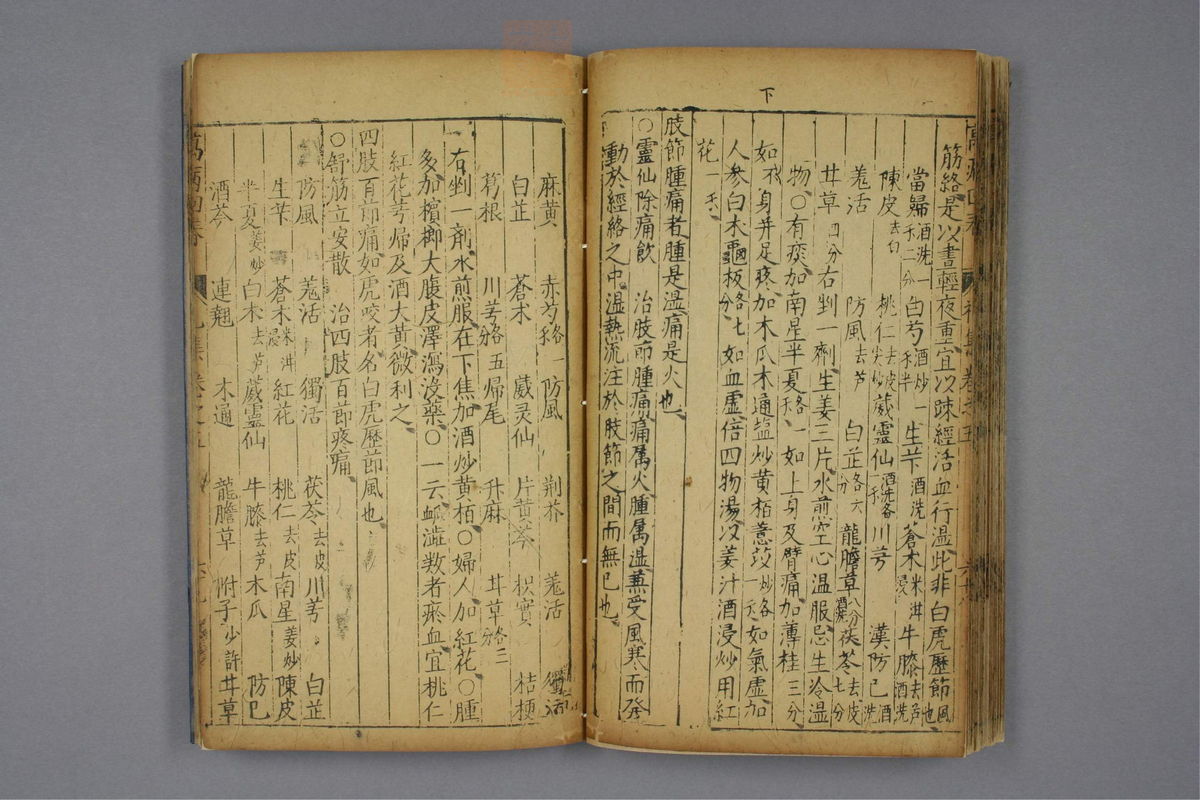 下
筋絡是以晝輕夜重宜以疎經活血行湿此非白虎歷節風也
當歸酒洗一錢二分 白芍酒炒一錢半 生芐酒洗 蒼朮米泔浸 牛膝去芦酒洗
陳皮去白 桃仁去皮尖炒 葳靈仙酒洗各一錢 川芎 漢防已酒洗
羗活 防風去芦 白芷各六分 龍膽草八分酒洗 茯苓去皮七分
甘草四分右剉一劑生姜三片水煎空心温服忌生冷湿
物○有痰加南星半夏各一錢如上身及臂痛加薄桂三分
如下身并足疼加木瓜木通塩炒黄栢薏苡炒各一錢如氣虚加
人参白朮龜板各七分如血虚倍四物湯以姜汁酒浸炒用紅
花一錢
肢節腫痛者腫是湿痛是火也
○靈仙除痛飲 治肢節腫痛痛属火腫属湿兼受風寒而發
動於經絡之中湿熱流注於肢節之間而無已也
麻黄 赤芍各一錢 防風 荆芥 羗活 獨活
白芷 蒼朮 葳灵仙 片黄芩 枳實 桔梗
葛根 川芎各五分 帰尾 升麻 甘草各三分
右剉一剤水煎服在下焦加酒炒黄栢○婦人加紅花○腫
多加檳榔大腹皮澤瀉没藥○一云脉澁数者瘀血宜桃仁
紅花芎帰及酒大黄微利之
四肢百節痛如虎咬者名白虎歷節風也
○舒筋立安散 治四肢百節疼痛
防風 羗活 獨活 茯苓去皮 川芎 白芷
生芐 蒼朮米泔浸 紅花 桃仁去皮 南星姜炒 陳皮
半夏姜炒 白朮去芦 葳靈仙 牛膝去芦 木瓜 防已
酒芩 連翹 木通 龍膽草 附子少許 甘草